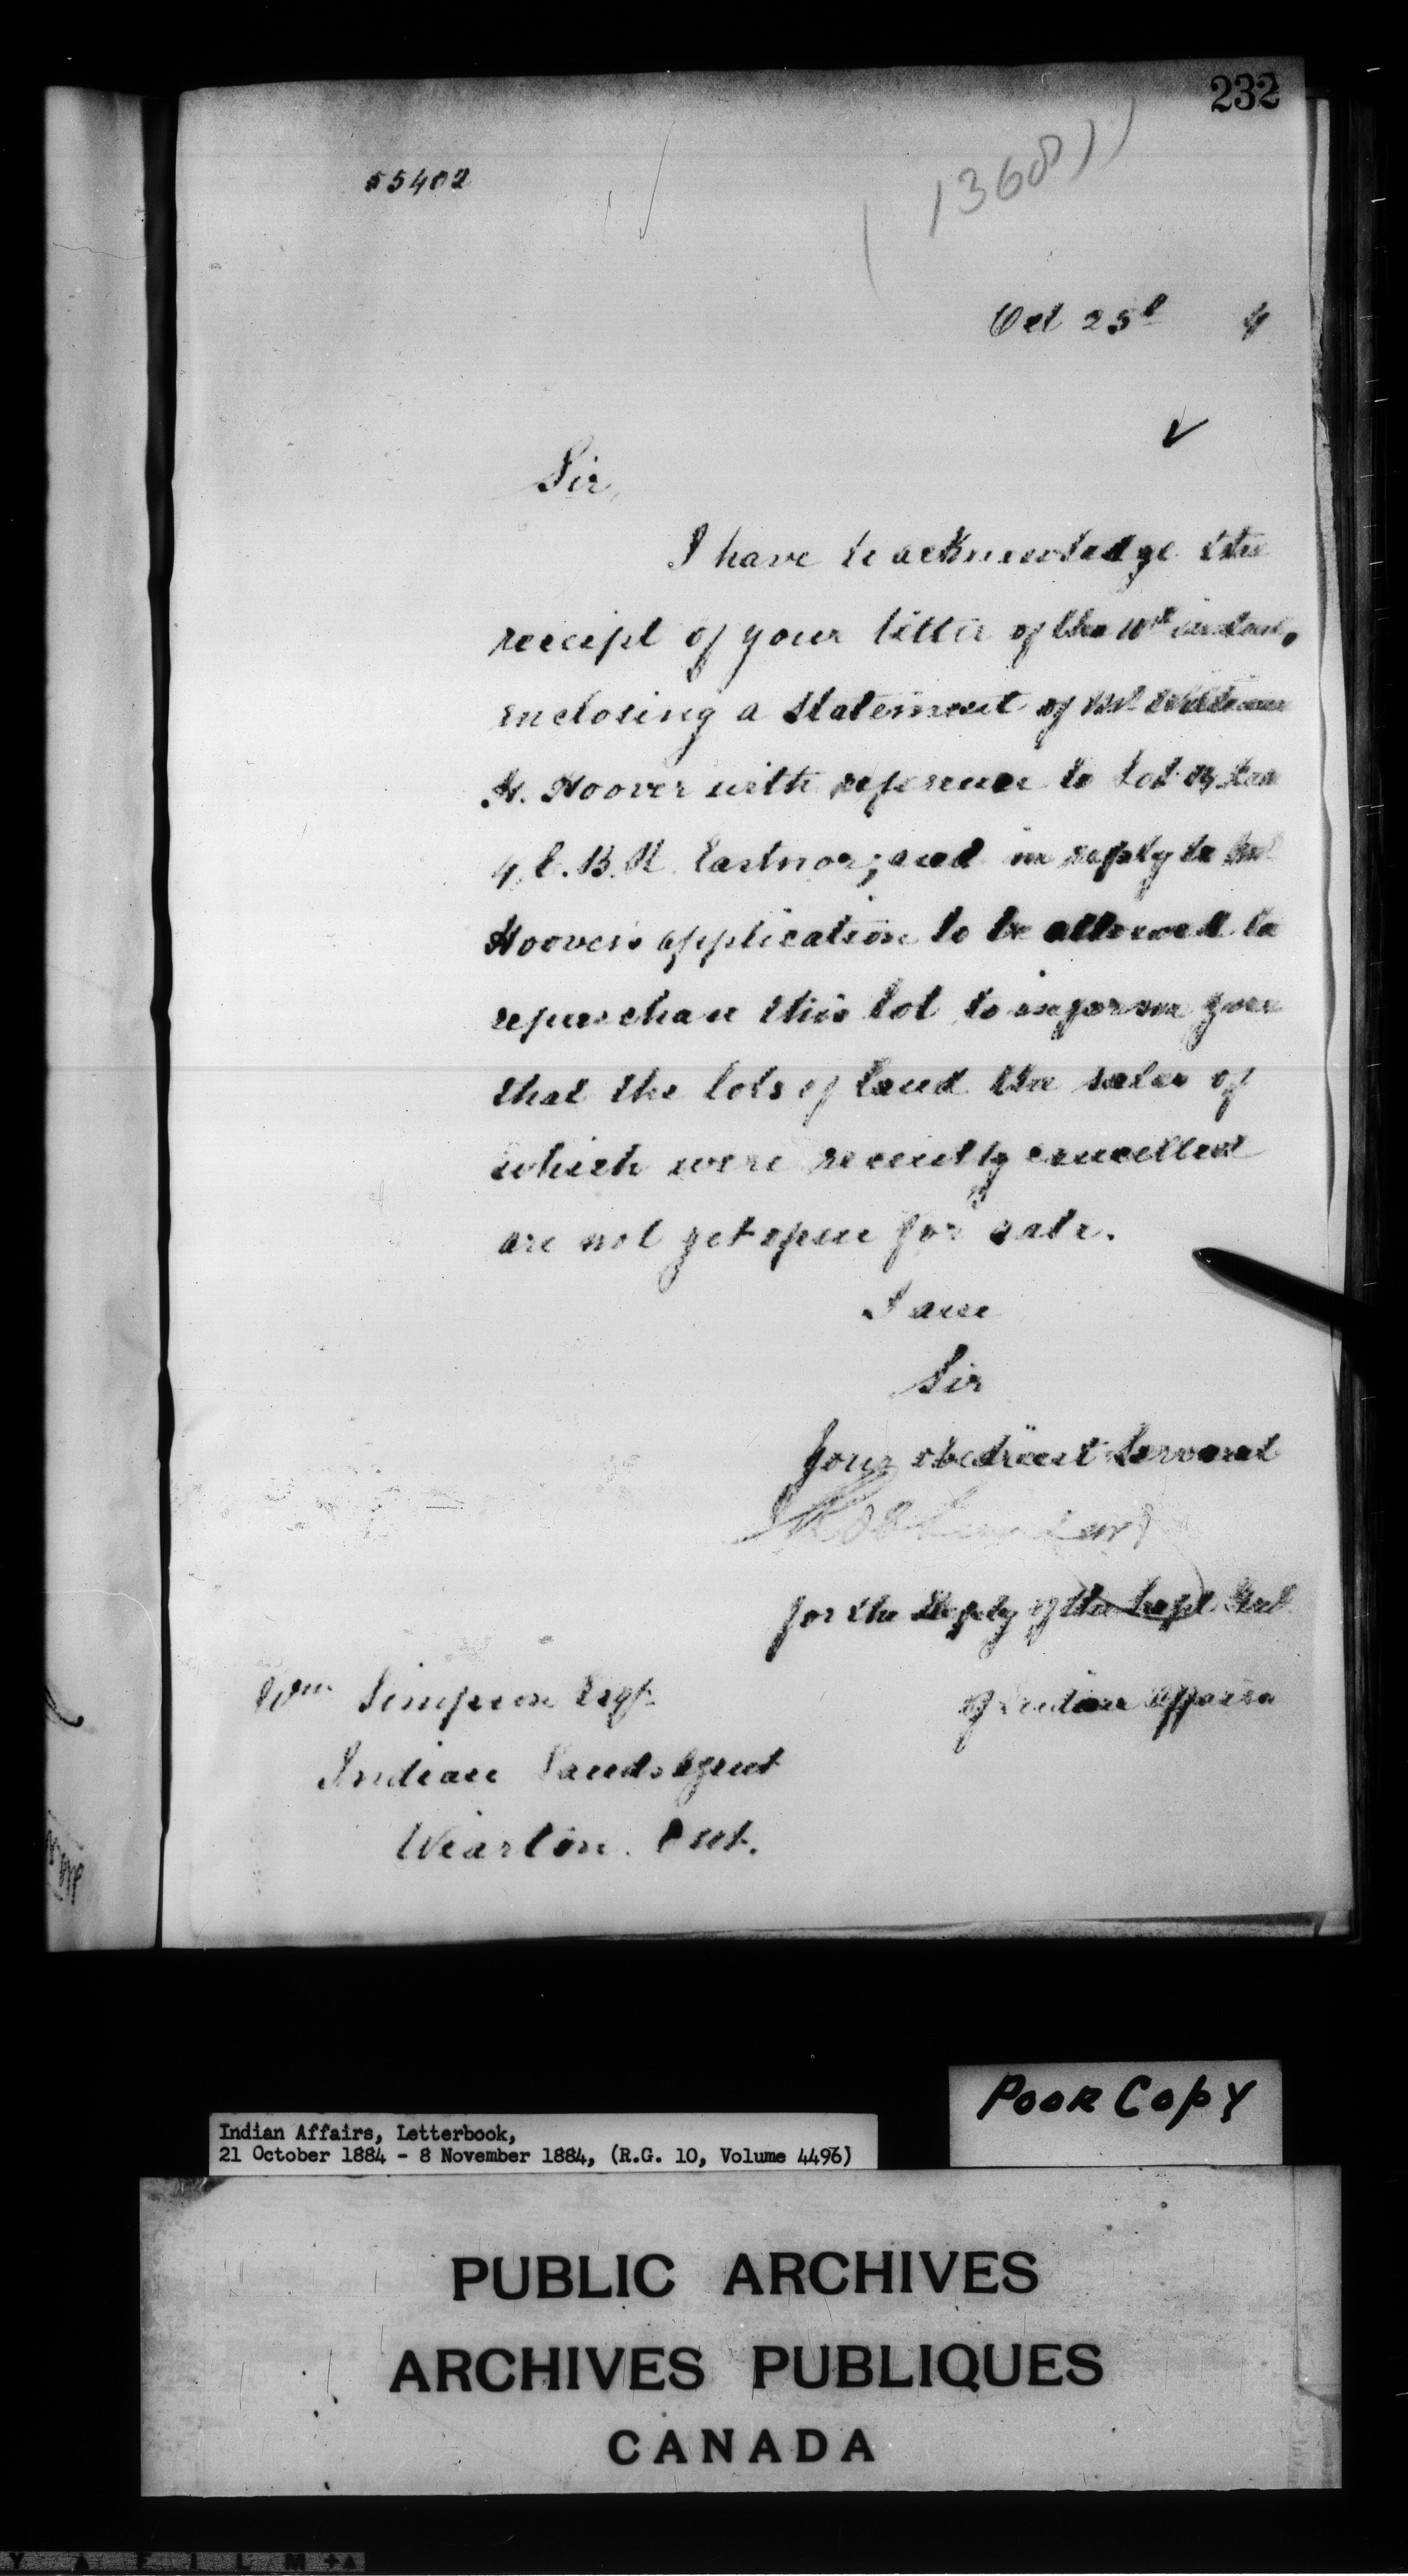 232
55402
1368
Oct 25th 4
Sir,
I have to acknowledge the
receipt of your letter of the 10th instant,
enclosing a statement of Mr William
H. Hoover with reference to Lot
4, E.B.R. Eastnor; and in reply to Mr
Hoover's application to be allowed to
repurchase this lot to inform you
that the lots of land the sales of
which were recently cancelled
are not yet open for sale.
I am
Sir
Your obedient Servant
for the Deputy of the Supt Genl
of Indian Affairs
Wm Simpson Esqr
Indian Lands Agent
Wiarton. Ont.
POOR COPY
Indian Affairs, Letterbook,
21 October 1884 - 8 November 1884, (R.G. 10, Volume 4496)
PUBLIC ARCHIVES
ARCHIVES PUBLIQUES
CANADA